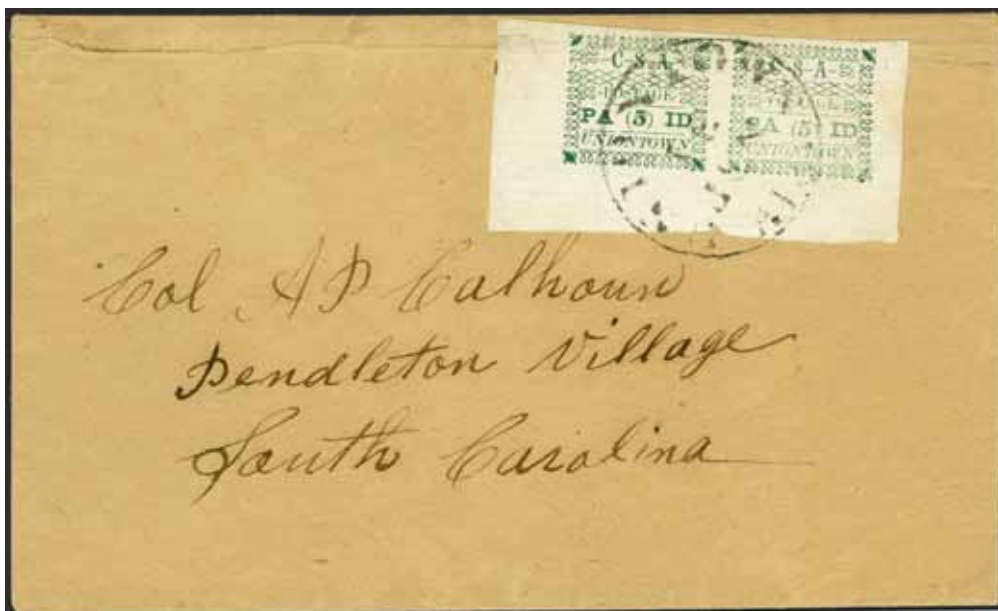 C-S-A-
POSTAGE
PA (5) ID
UNIONTOWN
S-A-
PA (5) ID
UNIONTOWN
Col A P Calhoun
Pendleton Village
South Carolina